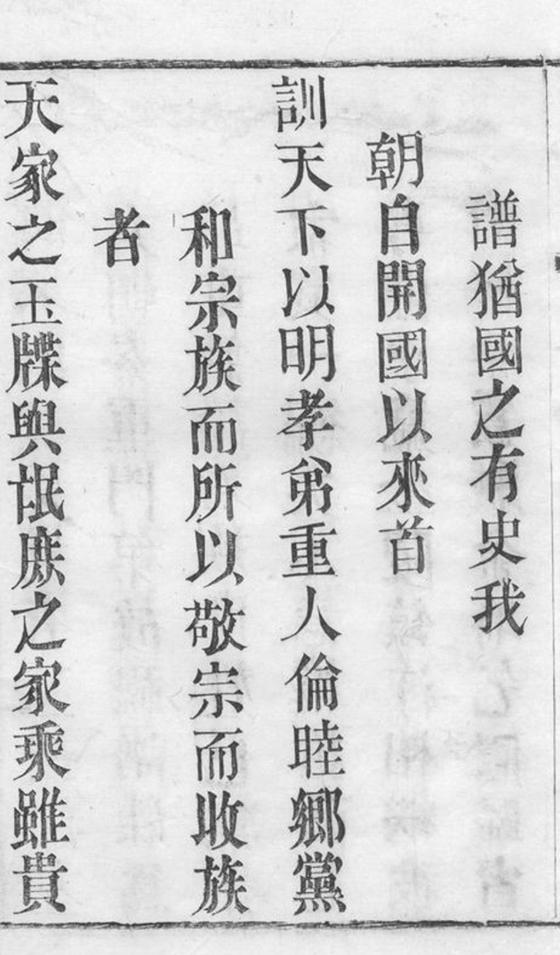 譜猶國之有史我
朝自開國以來首
訓天下以明孝弟重人倫睦鄉黨
和宗族而所以敬宗而收族
者
天家之玉牒與氓庶之家乘雖貴